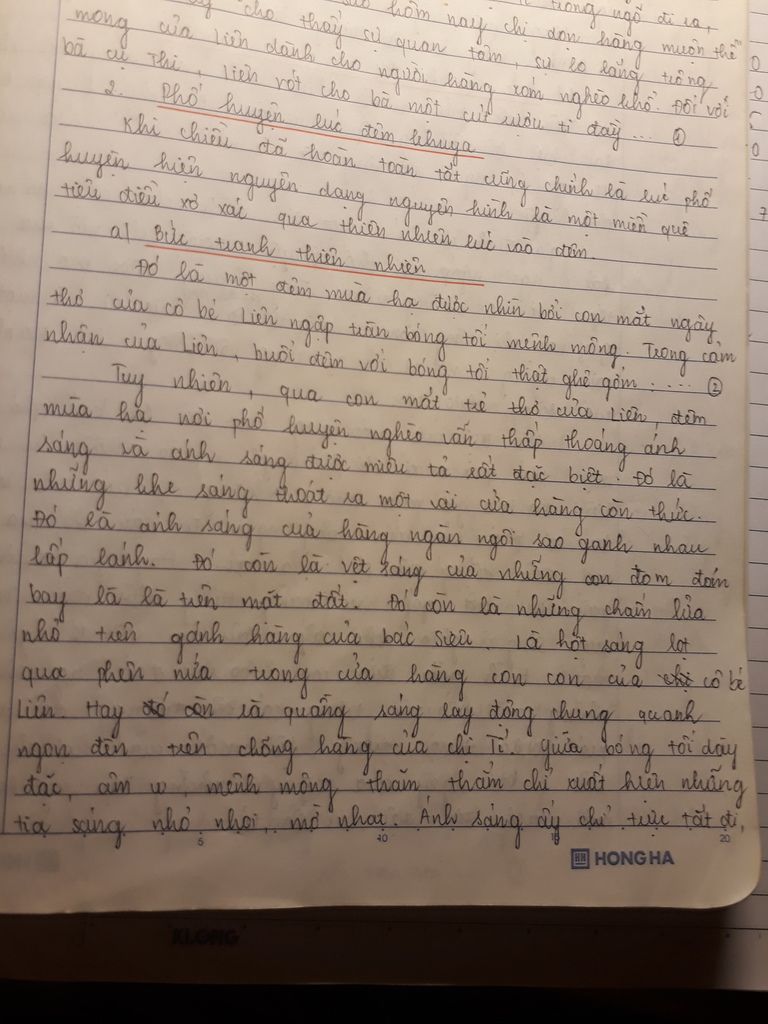 cho thấy sự quan tâm, sự lo lắng tưởng
hôm nay chị dọn hàng muộn thế"
mong của Liên dành cho người hàng xóm nghèo khổ. Đối với
bà cụ Thi, Liên rót cho bà một cút rượu ti đầy... ①
2. Phố huyện lúc đêm khuya
Khi chiều đã hoàn toàn tắt cũng chính là lúc phố
huyện hiện nguyên dạng nguyên hình là một miền quê
tiêu điều xơ xác qua thiên nhiên lúc vào đêm.
a) Bức tranh thiên nhiên
Đó là một đêm mùa hạ được nhìn bởi con mắt ngây
thơ của cô bé Liên ngập tràn bóng tối mênh mông. Trong cảm
nhận của Liên, buổi đêm với bóng tối thật ghê gớm..... ②
Tuy nhiên, qua con mắt trẻ thơ của Liên, đêm
mùa hạ nơi phố huyện nghèo vẫn thấp thoáng ánh
sáng và ánh sáng được miêu tả rất đặc biệt. Đó là
những khe sáng thoát ra một vài cửa hàng còn thức.
Đó là ánh sáng của hàng ngàn ngôi sao ganh nhau
lấp lánh. Đó còn là vệt sáng của những con đom đóm
bay là là trên mặt đất. Đó còn là những chấm lửa
nhỏ trên gánh hàng của bác Siêu. Là hột sáng lọt
qua phên nứa trong cửa hàng con con của cô bé
Liên. Hay là quầng sáng lay động chung quanh
ngọn đèn trên chõng hàng của chị Tí. Giữa bóng tối dày
đặc, âm u, mênh mông thăm thẳm chỉ xuất hiện những
tia sáng nhỏ nhoi, mờ nhạt. Ánh sáng ấy chỉ trực tắt đi,
5 10 15 20
HH HONG HA
KLONG